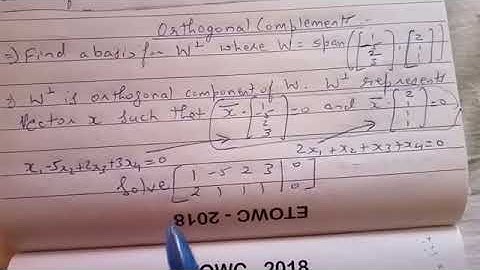 Orthogonal Complement
⇒) Find a basis for W⊥ where W = span([1 -5 2 3], [2 1 1 1])
⇒) W⊥ is orthogonal component of W. W⊥ represents
vector x such that x̄ · [1 -5 2 3] = 0 and x̄ · [2 1 1 1] = 0
x₁-5x₂+2x₃+3x₄=0 2x₁+x₂+x₃+x₄=0
Solve [1 -5 2 3 | 0
2 1 1 1 | 0]
ETOWC - 2018
OWC 2018